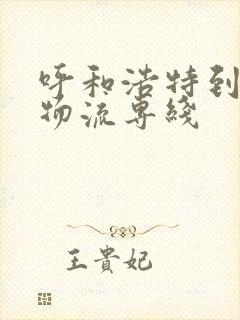 呼和浩特到
物流専綫
王貴妃